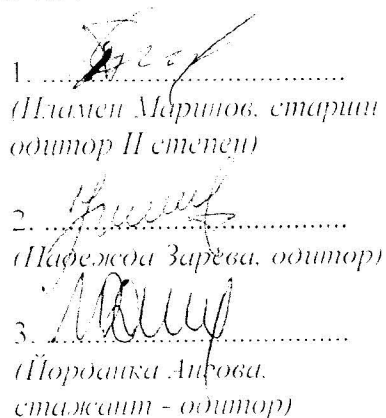 1. ..............................
(Пламен Маринов, старши
одитор II степен)
2. ..............................
(Надежда Зарева, одитор)
3. ..............................
(Йорданка Ангова,
стажант - одитор)